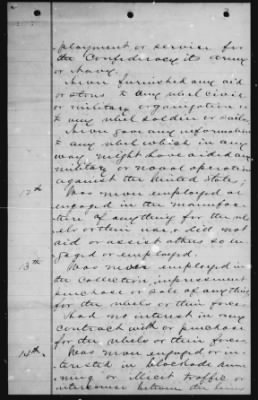 ployment or service for
the Confederacy its army
or Navy.
Never furnished any aid
or stores to any rebel civil
or military organization or
to any rebel soldier or sailor
Never gave any information
to any rebel which in any
way might have aided any
military or naval operation
against the United States;
12th Was never employed or
engaged in the manufac-
ture of anything for the re-
bels or their use, & did not
aid or assist others so en-
gaged or employed.
13th Was never employed in
the collection impressment
purchase or sale of anything
for the rebels or their forces
Had no interest in any
contract with or purchase
for the rebels or their forces
14th Was never engaged or in-
terested in blockade run-
ning or illicit traffic or
intercourse between the lines